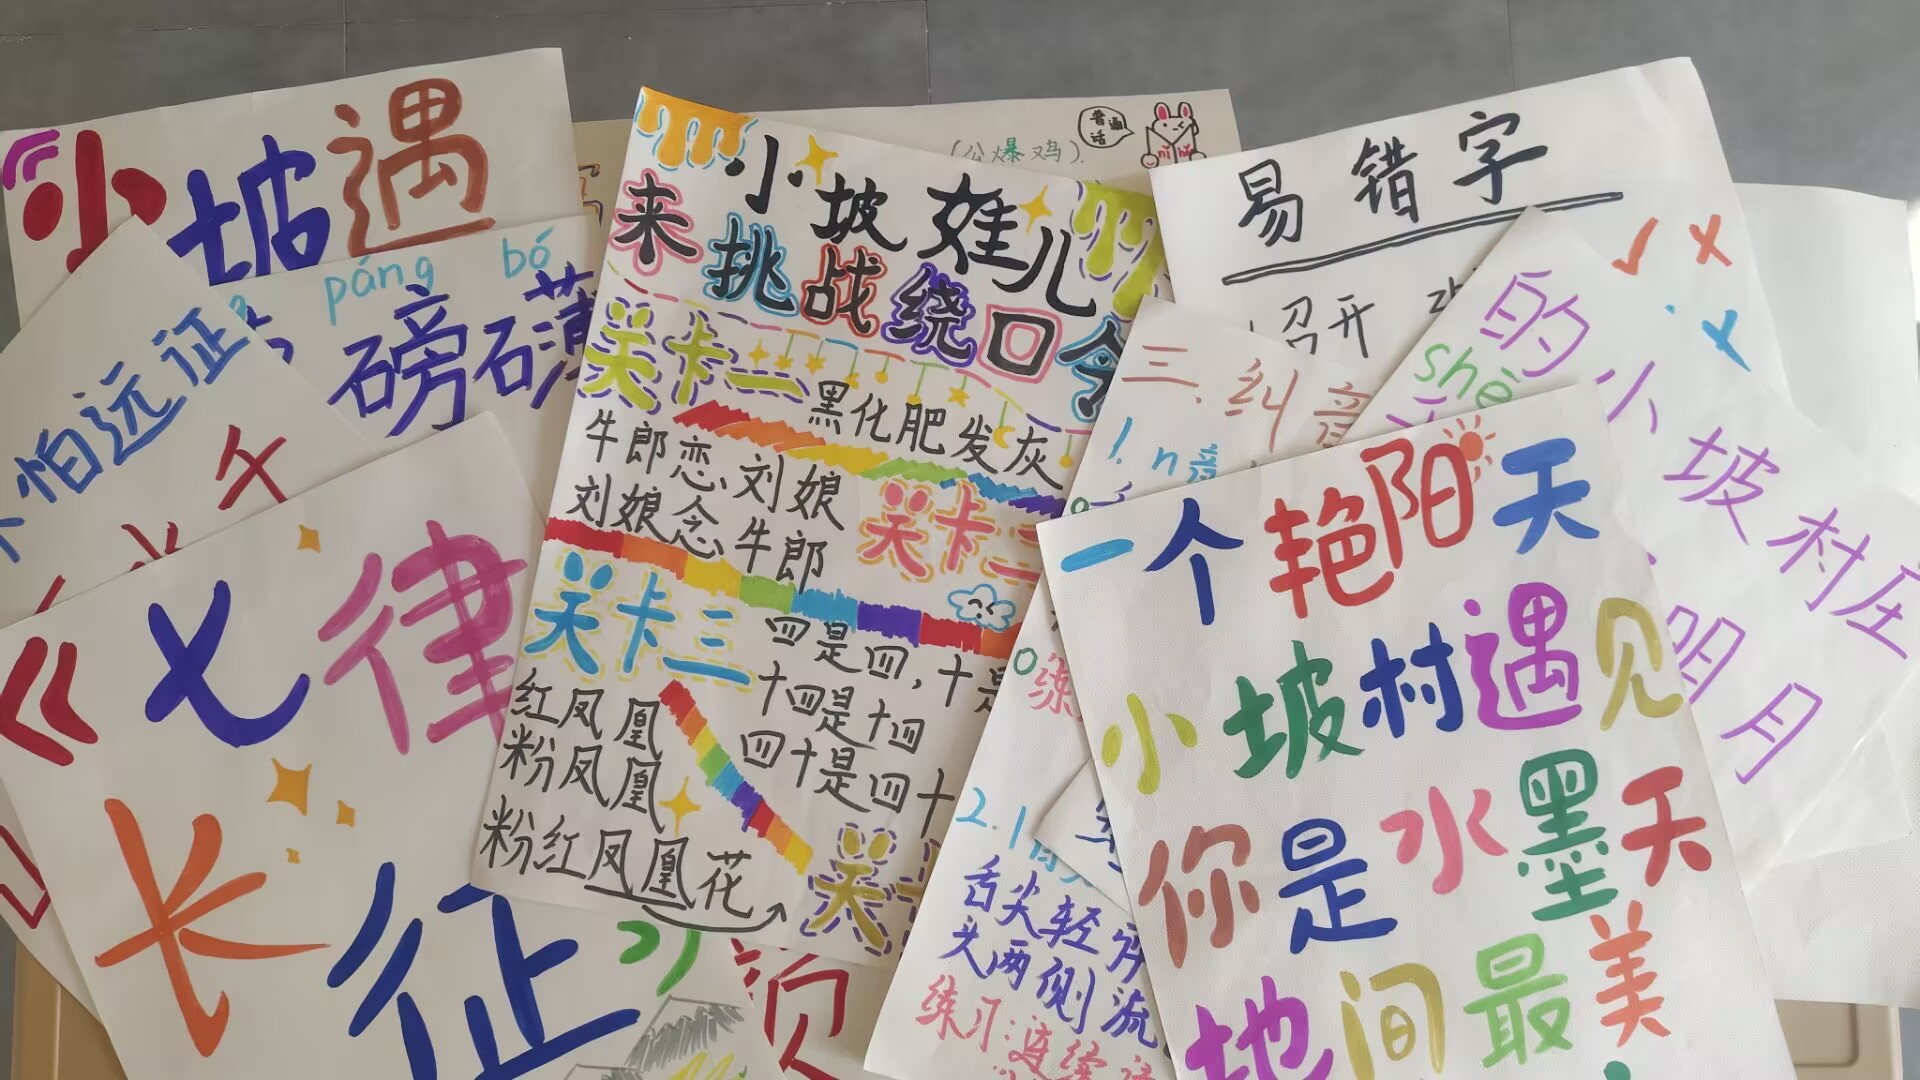 小坡遇
páng bó
磅礴
怕远征
《七律
长征
(公爆鸡)
普通话
nǐ hǎo
小坡娃儿
来挑战绕口令
关卡一
黑化肥发灰
牛郎恋刘娘
刘娘念牛郎
关卡二
关卡三
四是四,十是
十四是十四
四十是四十
红凤凰
粉凤凰
粉红凤凰花
关
易错字
召开
三、纠音
1. n音
练
2. l音
舌尖轻
头两侧流
练习:连续
的小坡村庄
明月
一个艳阳天
小坡村遇见
你是水墨天
地间最美